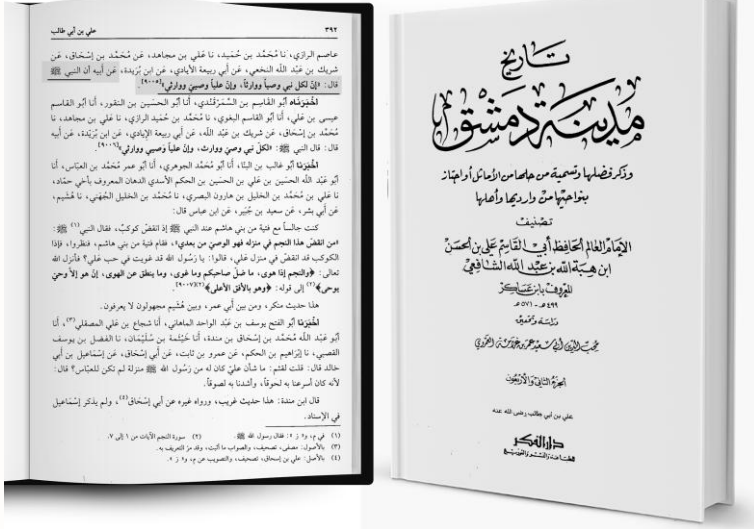 ٣٩٢
علي بن أبي طالب
عاصم الرازي، نا مُحَمَّد بن حُمَيد، نا عَلي بن مجاهد، عَن مُحَمَّد بن إسْحَاق، عَن
شريك بن عَبْد اللّه النخعي، عَن أَبي ربيعة الأيادي، عَن ابن بُرَيدة، عَن أبيه أن النبي ﷺ
قال: «إنّ لكل نبي وصياً ووارثاً، وإنّ علياً وصيي ووارثي»[٩٠٠٥].
أَخْبَرَنَاه أَبُو القَاسِم بن السَّمَرْقَنْدي، أنا أَبُو الحسَين بن النقور، أنا أَبُو القاسم
عيسى بن عَلي، أنا أَبُو القاسم البغوي، نا مُحَمَّد بن حُمَيد الرازي، نا عَلي بن مجاهد، نا
مُحَمَّد بن إسْحَاق، عَن شريك بن عَبْد اللّه، عَن أَبي ربيعة الإيادي، عَن ابن بُرَيْدة، عَن أبيه
قال: قال النبي ﷺ: «لكلّ نبي وصي ووارث، وإنّ علياً وَصيي ووارثي»[٩٠٠٦].
أَخْبَرَنا أَبُو غالب بن البنّا، أَنا أَبُو مُحَمَّد الجوهري، أنا أَبُو عمر مُحَمَّد بن العبّاس، أنا
أَبُو عَبْد اللّه الحسَين بن عَلي بن الحسين بن الحكم الأسدي الدهان المعروف بأخي حمّاد،
نا عَلي بن مُحَمَّد بن الخليل بن هارون البصري، نا مُحَمَّد بن الخليل الجُهَني، نا هُشَيم،
عَن أَبي بشر، عَن سعيد بن جُبَير، عَن ابن عباس قال:
كنت جالساً مع فتية من بني هاشم عند النبي ﷺ إذ انقضّ كوكبٌ، فقال النبي (١) ﷺ:
«من انقضّ هذا النجم في منزله فهو الوصيّ من بعدي»، فقام فتية من بني هاشم، فنظروا، فإذا
الكوكب قد انقضّ في منزل عَلي، قالوا: يا رَسُول اللّه قد غويت في حب عَلي؟ فأنزل اللّه
تعالى: ﴿والنجم إذا هوى، ما ضلّ صاحبكم وما غوى، وما ينطق عن الهوى، إنْ هو إلاّ وحيٌ
يوحى﴾ (٢) إلى قوله: ﴿وهو بالأفق الأعلى﴾ (٢)[٩٠٠٧].
هذا حديث منكر، ومن بين أبي عمر، وبين هُشَيم مجهولون لا يعرفون.
أَخْبَرَنا أَبُو الفتح يوسف بن عَبْد الواحد الماهاني، أنا شجاع بن عَلي المصقلي (٣)، أنا
أَبُو عَبْد اللّه مُحَمَّد بن إسْحَاق بن مندة، أنا خَيْثَمة بن سُلَيْمَان، نا الفضل بن يوسف
القصبي، نا إبْرَاهيم بن الحكم، عَن عمرو بن ثابت، عَن أَبي إسْحَاق، عَن إسْمَاعيل بن أَبي
خالد قال: قلت لقثم: ما شأن عليّ كان له من رَسُول اللّه ﷺ منزلة لم تكن للعبّاس؟ قال:
لأنه كان أسرعنا به لحوقاً، وأشدنا به لصوقاً.
قال ابن مندة: هذا حديث غريب، ورواه غيره عن أَبي إسْحَاق (٤)، ولم يذكر إسْمَاعيل
في الإسناد.
(١) في م، و« ز »: فقال رسول الله ﷺ. (٢) سورة النجم الآيات من ١ إلى ٧.
(٣) بالأصول: مصفى، تصحيف، والصواب ما أثبت، وقد مرّ التعريف به.
(٤) بالأصل: علي بن إسحاق، تصحيف، والتصويب عن م، و« ز ».
تاريخ
مدينة دمشق
وذكر فضلها وتسمية من حلها من الأماثل أو اجتاز
بنواحيها من وارديها وأهلها
تصنيف
الإمام العالم الحافظ أبي القاسم علي بن الحسن
ابن هبة الله بن عبد الله الشافعي
المعروف بابن عساكر
٤٩٩ هـ - ٥٧١ هـ
دراسة وتحقيق
محب الدين أبي سعيد عمر بن غرامة العمروي
الجزء الثاني والأربعون
علي بن أبي طالب رضي الله عنه
دار الفكر
للطباعة والنشر والتوزيع